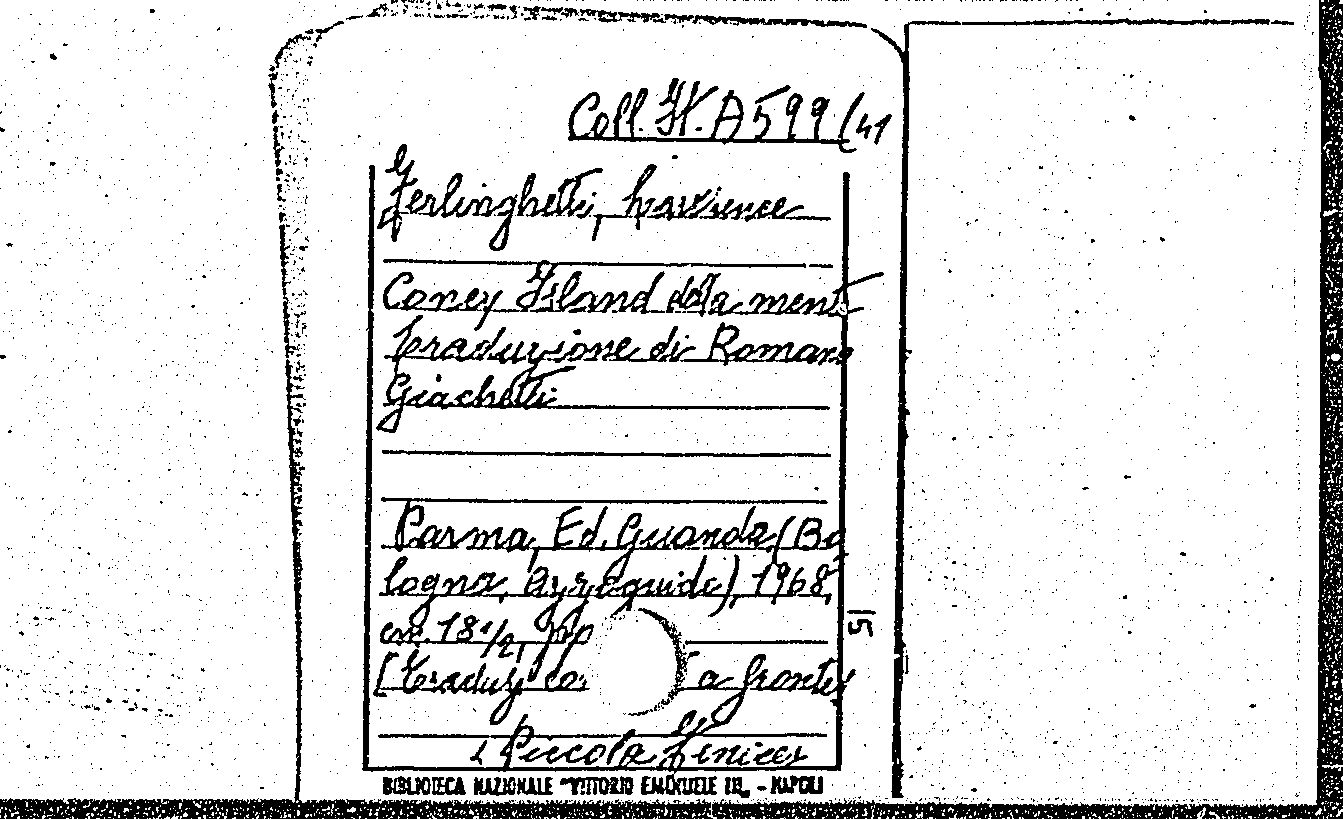 Coll. It. A 599 (41
Ferlinghetti, Lawrence
Coney Island della ment
traduzione di Romano
Giachetti
Parma, Ed. Guanda (Bo
logna, Azzoguidi), 1968,
cm. 18 1/2, pp
[Traduz. co a fronte]
(Piccola Fenice)
15
BIBLIOTECA NAZIONALE "VITTORIO EMANUELE III„ - NAPOLI